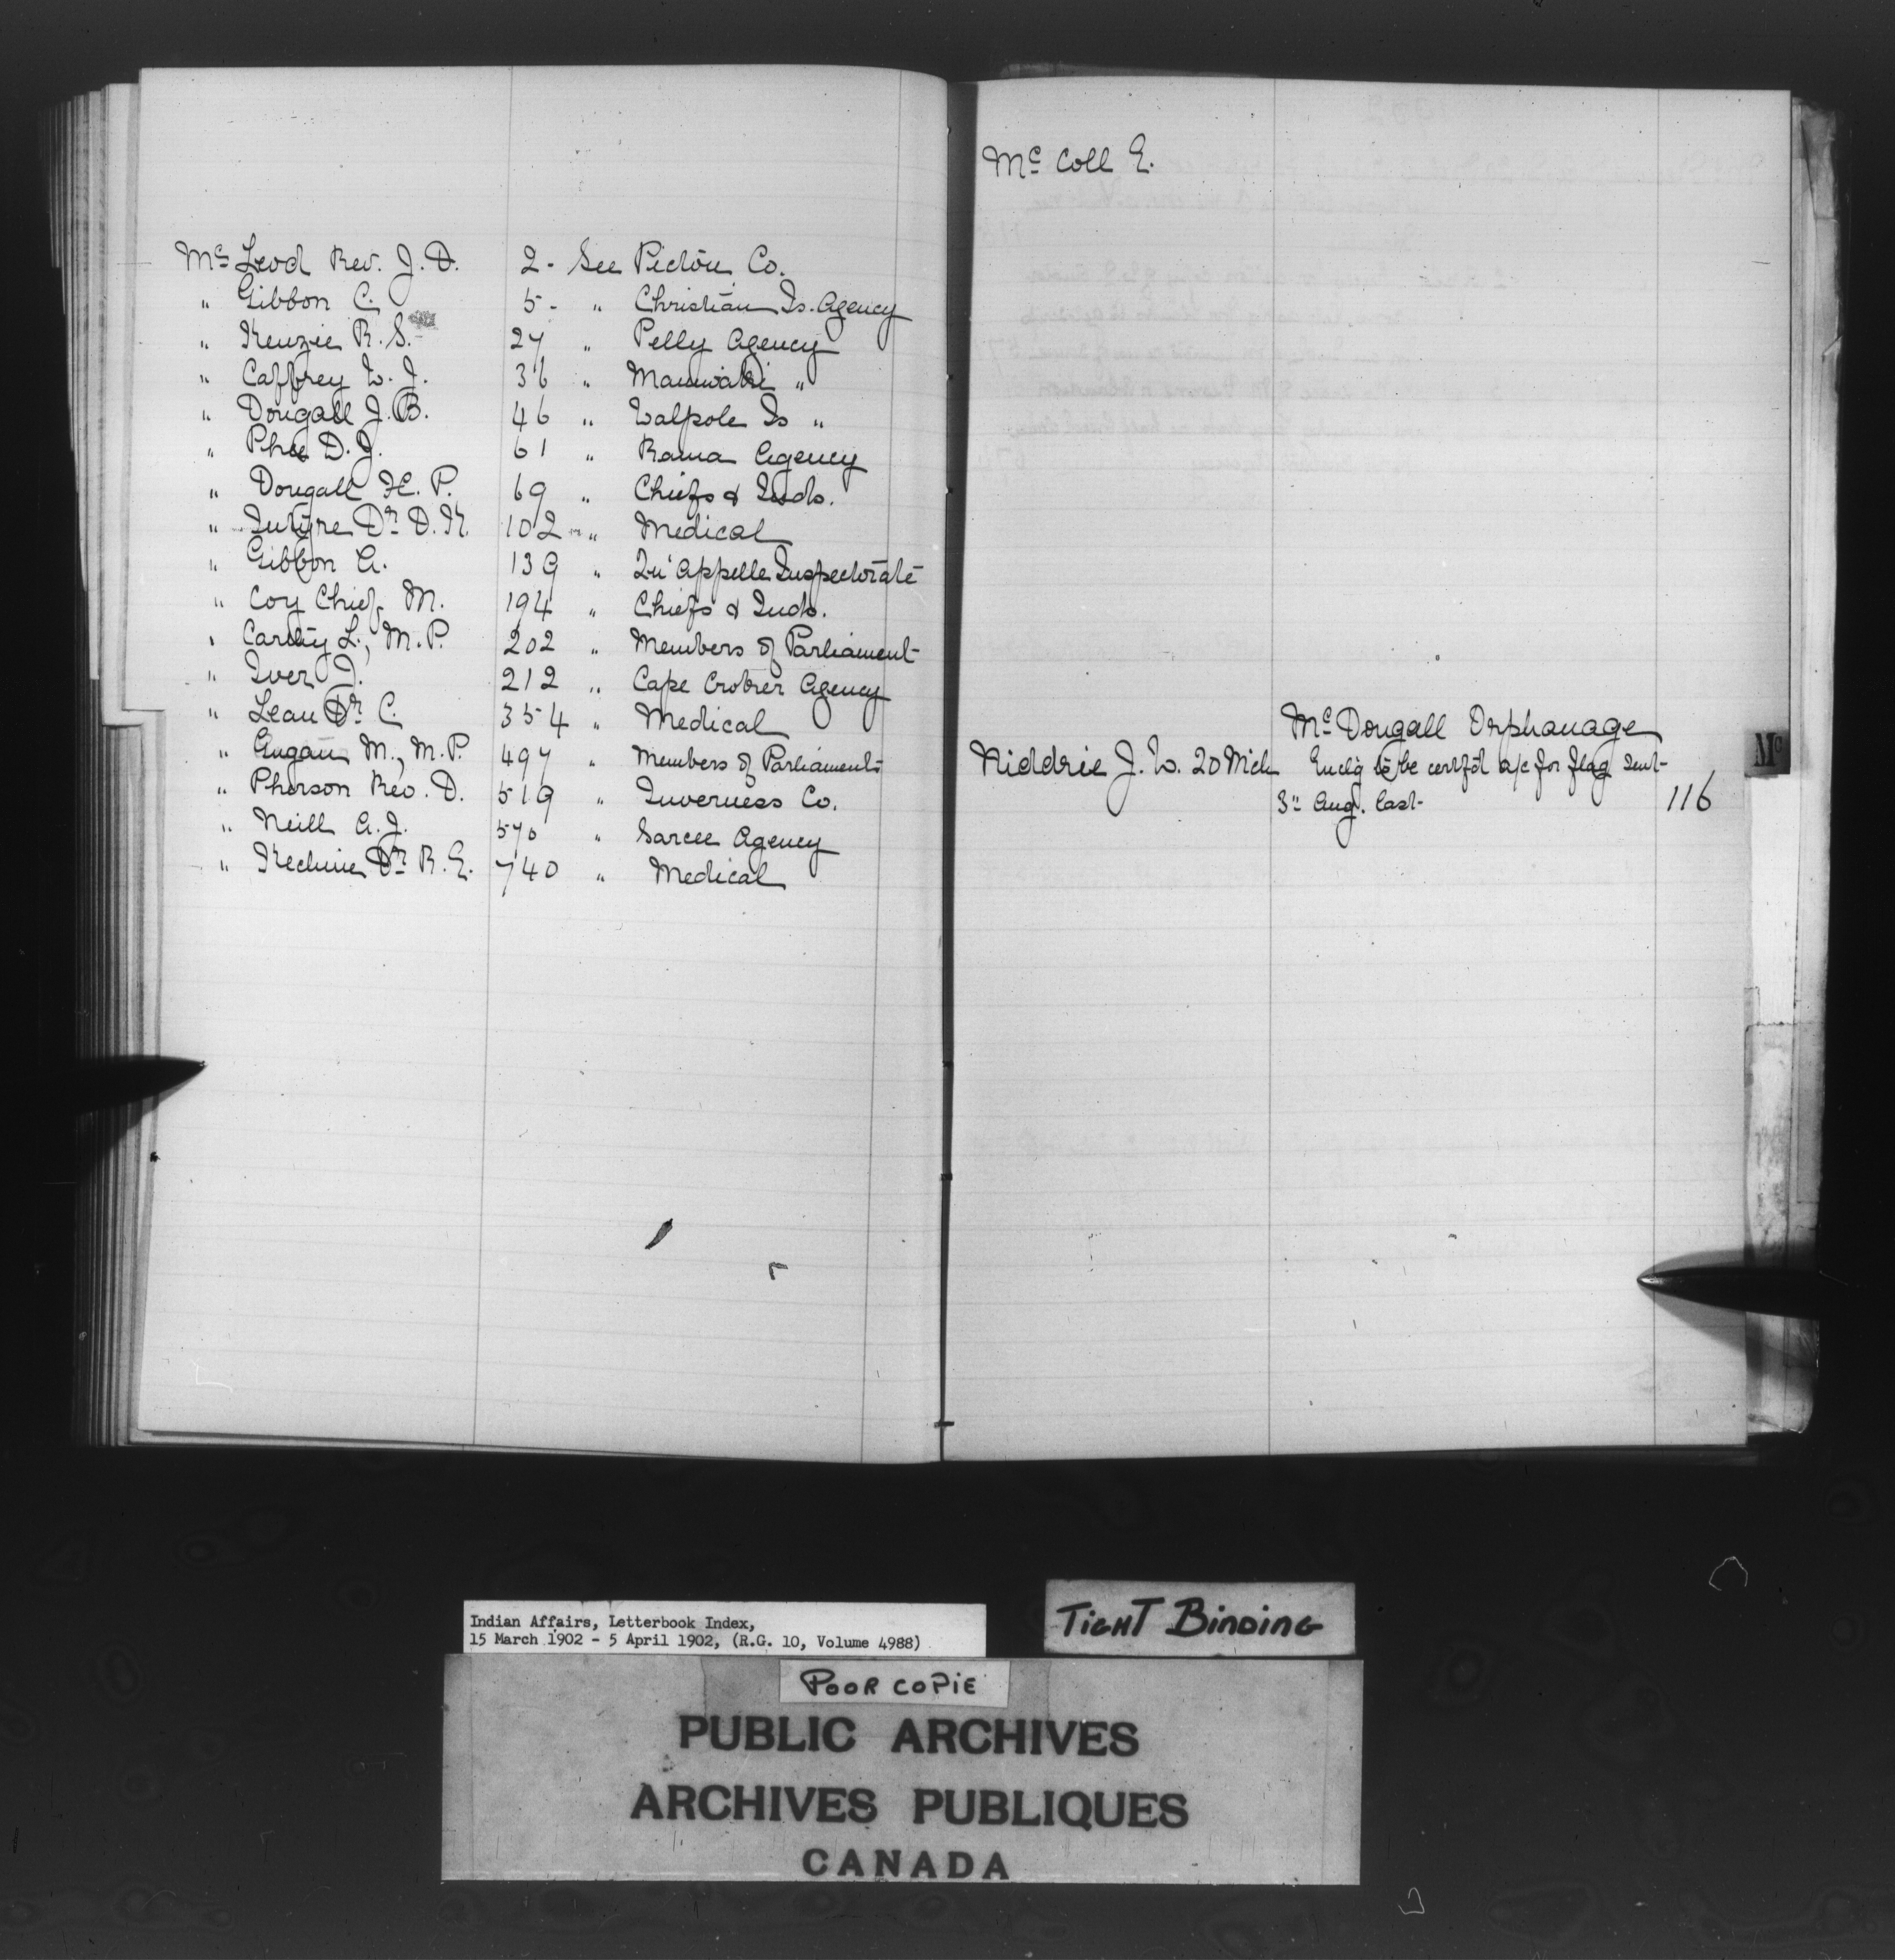 Mc Leod Rev. J. D. 2 - See Pictou Co.
" Gibbon C. 5 - " Christian Is. Agency
" Kenzie R. S. 27 " Pelly Agency
" Caffrey W. J. 36 " Maniwaki "
" Dougall J. B. 46 " Walpole Is "
" Phee D. J. 61 " Rama Agency
" Dougall H. P. 69 " Chiefs & Inds.
" Intyre Dr D. K. 102 " Medical
" Gibbon A. 139 " Qu'Appelle Inspectorate
" Coy Chief M. 194 " Chiefs & Inds.
" Carthy L., M.P. 202 " Members of Parliament
" Iver J. 212 " Cape Croker Agency
" Lean Dr C. 354 " Medical
" Gugan M., M.P. 497 " Members of Parliament
" Pherson Rev. D. 519 " Inverness Co.
" Neill A. J. 570 " Sarcee Agency
" Kechnie Dr R. E. 740 " Medical
Mc Coll E.
Mc Dougall Orphanage
Niddrie J. W. 20 Mch Enclg to be certf'd a/c for flag sent
3" Aug. last 116
Mc
Indian Affairs, Letterbook Index,
15 March 1902 - 5 April 1902, (R.G. 10, Volume 4988)
TIGHT BINDING
POOR COPIE
PUBLIC ARCHIVES
ARCHIVES PUBLIQUES
CANADA